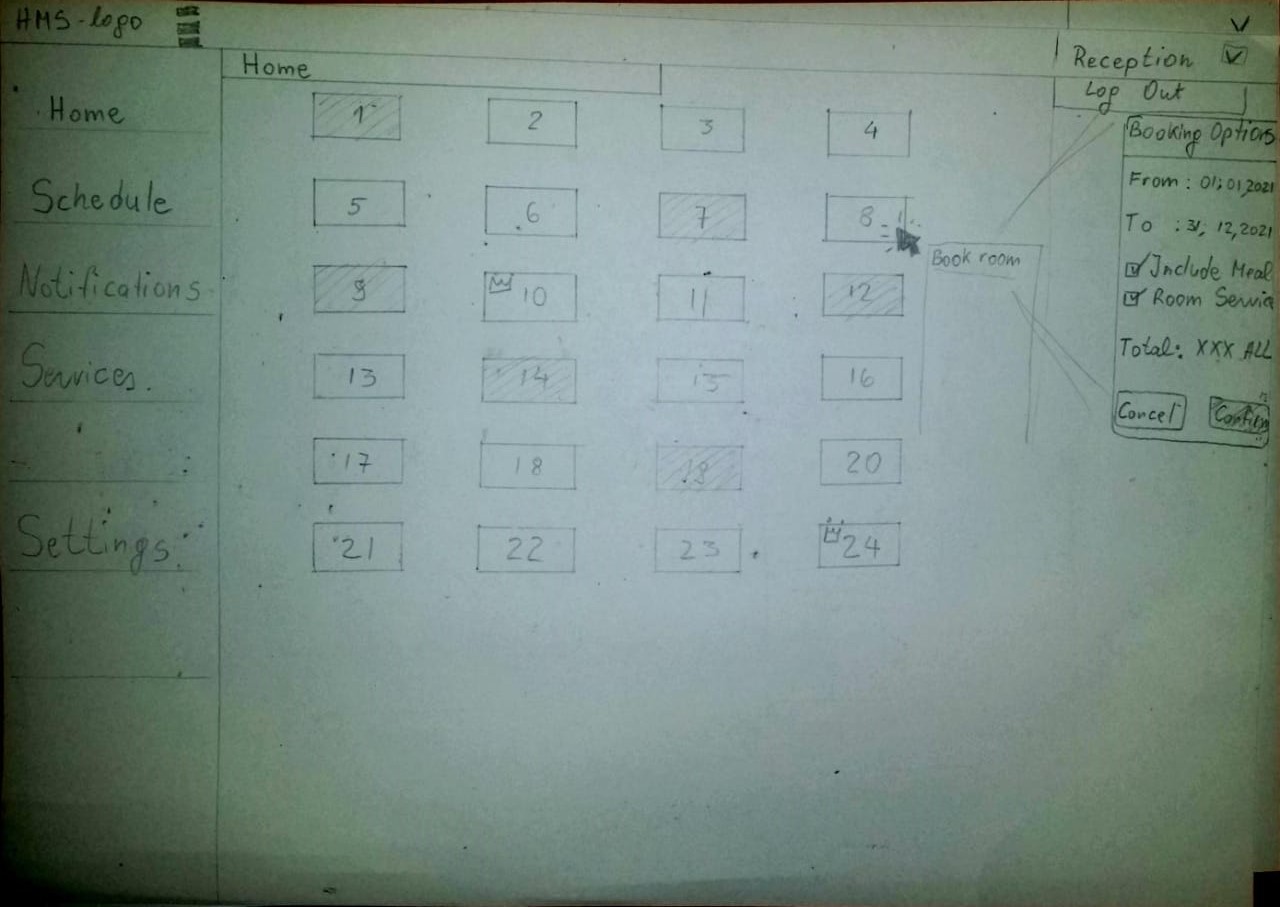 HMS-logo
Home
Reception
Log Out
Home
Schedule
Notifications
Services.
Settings
1 2 3 4
5 6 7 8
9 10 11 12
13 14 15 16
17 18 19 20
21 22 23 24
Book room
Booking Options
From: 01,01,2021
To : 31, 12,2021
Include Meal
Room Servic
Total: XXX ALL
Cancel Confirm